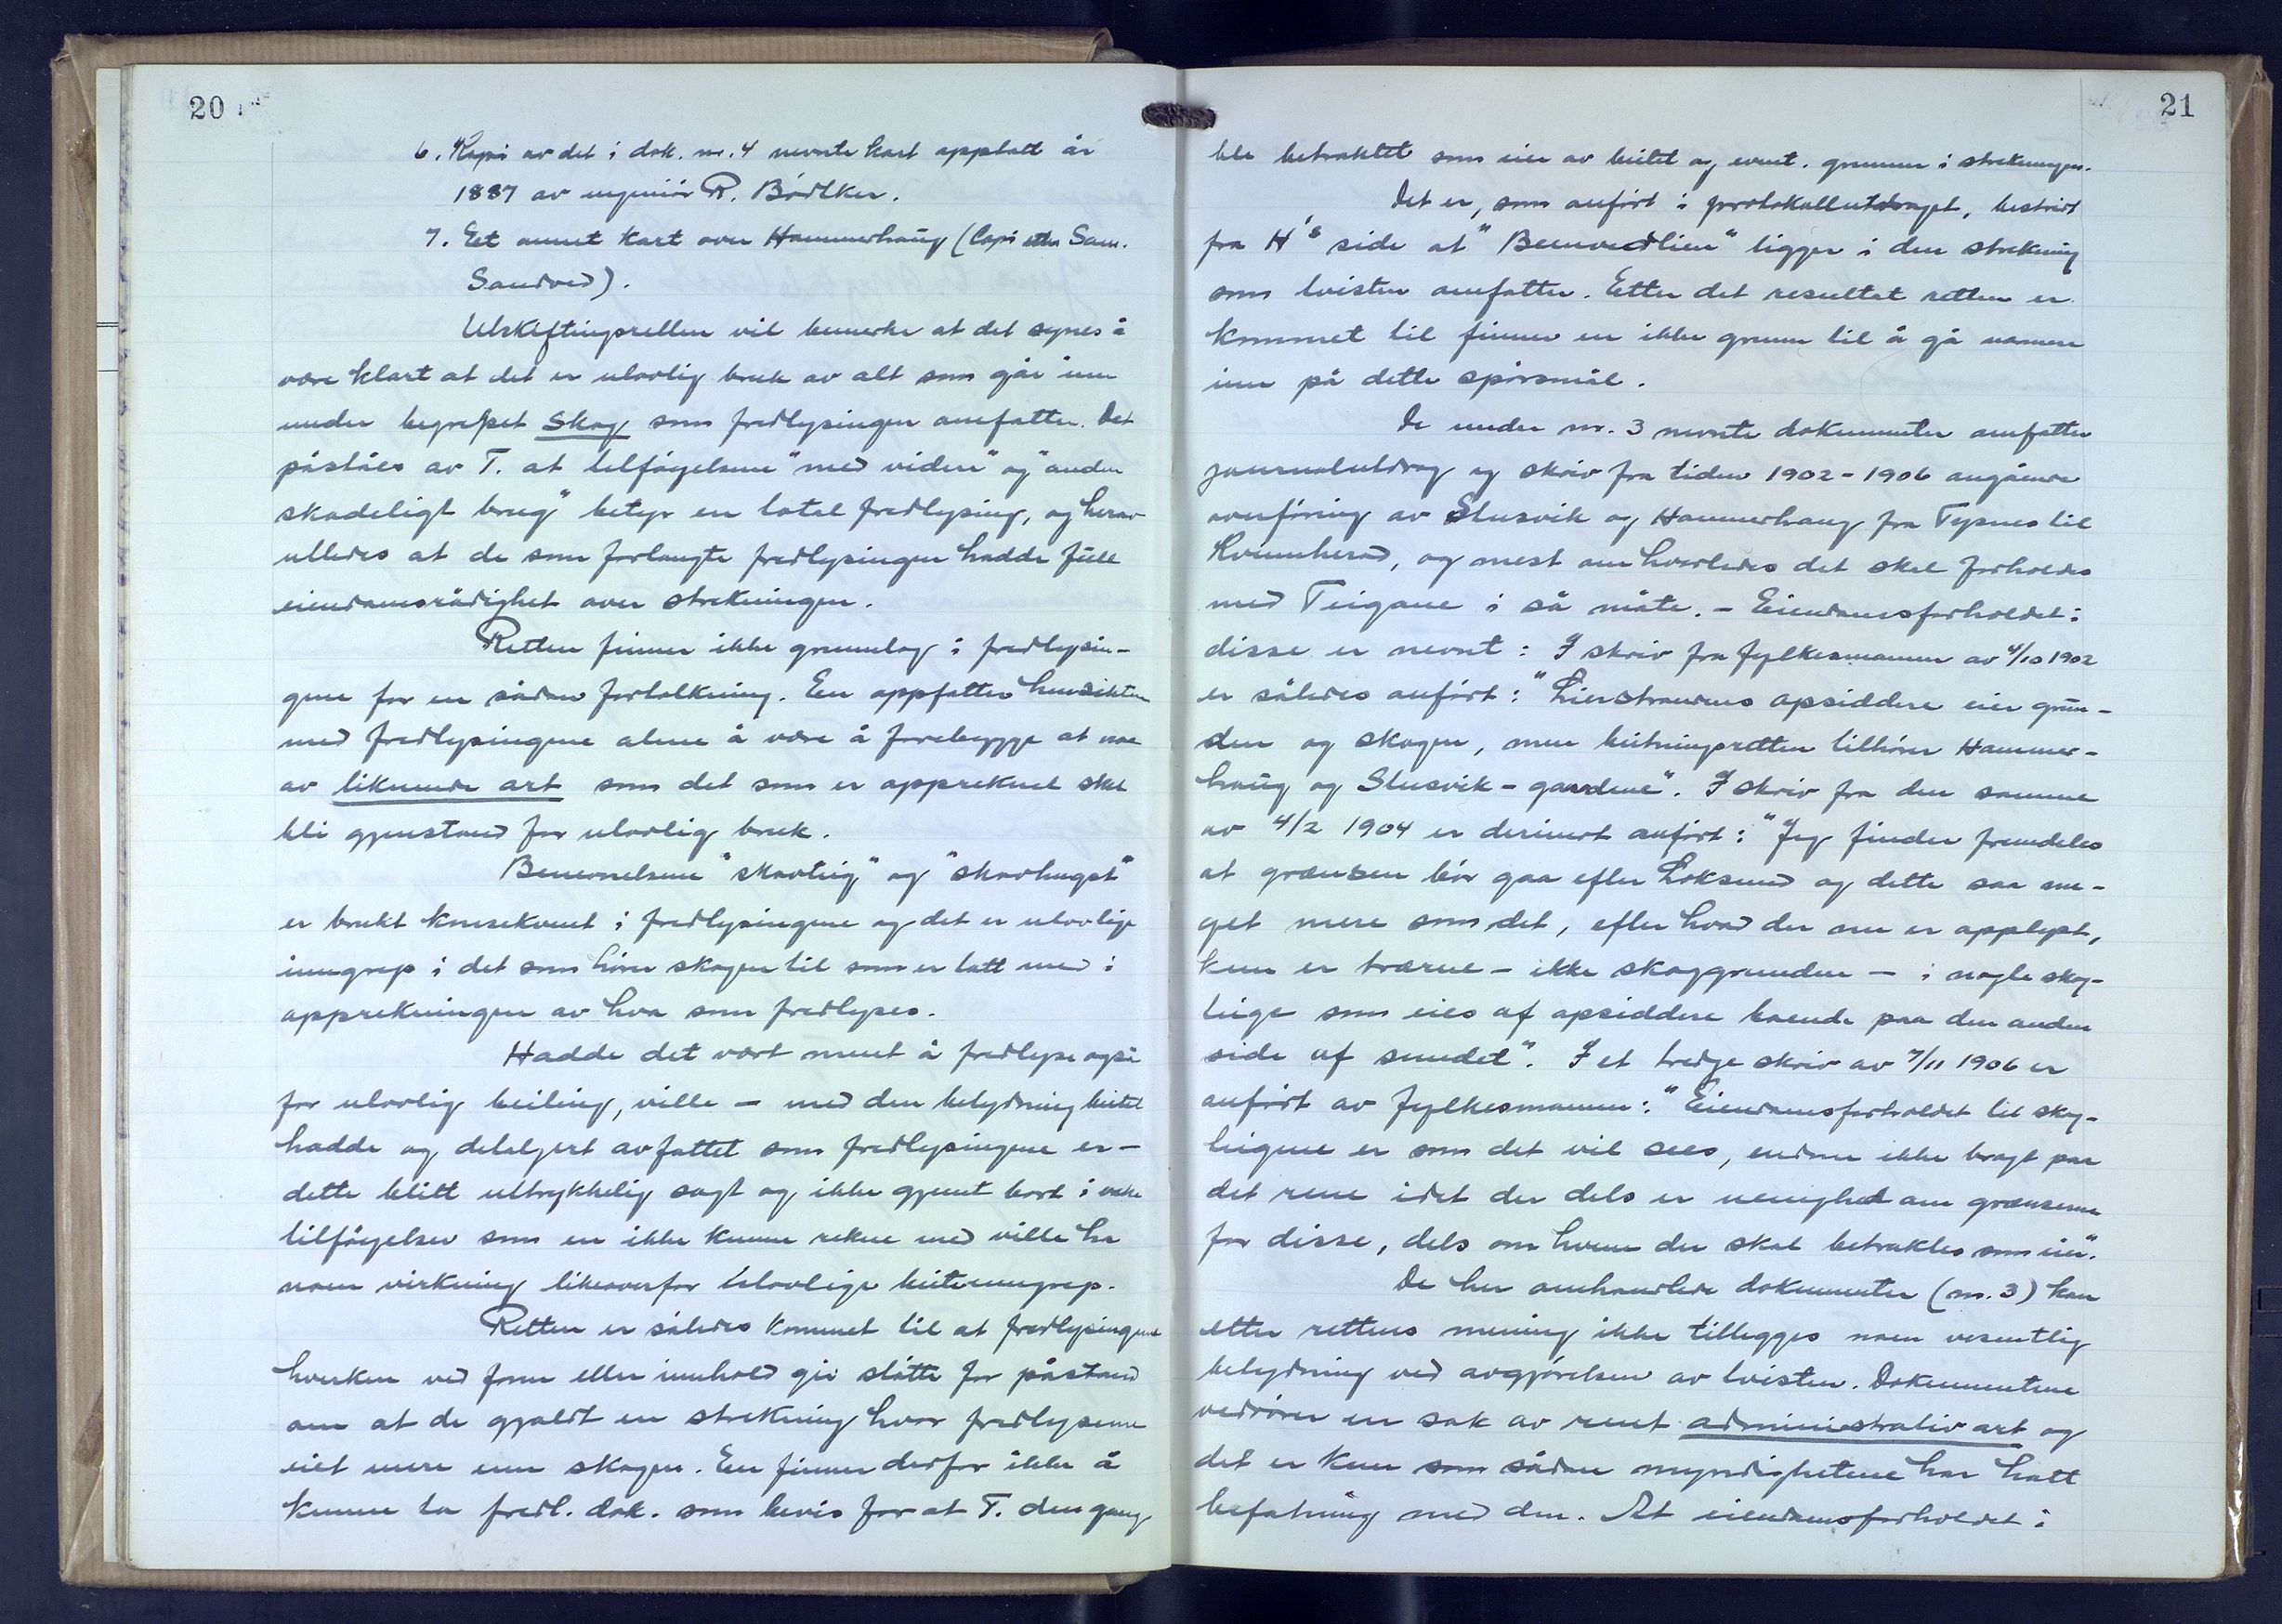 20
6. Kopi av det i dok. nr. 4 nevnte kart opptatt år
1887 av ingeniör R. Bödtker.
7. Eet annet kart over Hammerhaug (Copi etter Sam.
Sandved).
Utskiftingsretten vil bemerke at det synes å
være klart at det er ulovlig bruk av alt som går inn
under begrepet Skog som fredlysingen omfatter. Det
påståes av T. at tilföyelsene "med videre" og "anden
skadeligt brug" betyr en total fredlysing, og herav
utledes at de som forlangte fredlysingen hadde full
eiendomsrådighet over strekningen.
Retten finner ikke grunnlag i fredlysin-
gene for en sådan fortolkning. En oppfatter hensikten
med fredlysingene alene å være å forebygge at noe
av liknende art som det som er oppreknet skal
bli gjenstand for ulovlig bruk.
Benevnelsene "skovteig" og "skovhugst"
er brukt konsekvent i fredlysingene og det er ulovlige
inngrep i det som hörer skogen til som er tatt med i
opprekningen av hva som fredlyses.
Hadde det vært ment å fredlyse også
for ulovlig beiting, ville - med den betydning beitet
hadde og detaljert avfattet som fredlysingene er -
dette blitt uttrykkelig sagt og ikke gjemt bort i
tilföyelser som en ikke kunne rekne med ville ha
noen virkning likeoverfor ulovlige beiteinngrep.
Retten er således kommet til at fredlysingene
hverken ved form eller innhold gir stötte for påstand
om at de gjaldt en strekning hvor fredlyserne
eiet mere enn skogen. En finner derfor ikke å
kunne ta fredl. dok. som bevis for at T. den gang
21
ble betraktet som eier av beitet og event. grunnen i strekningen.
Det er, som anfört i protokollutdraget, bestridt
fra H's side at "Beenvedlien" ligger i den strekning
som tvisten omfatter. Etter det resultat retten er
kommet til finner en ikke grunn til å gå nærmere
inn på dette spörsmål.
De under nr. 3 nevnte dokumenter omfatter
journalutdrag og skriv fra tiden 1902-1906 angående
overföring av Slusvik og Hammerhaug fra Tysnes til
Kvinnherad, og mest om hvorledes det skal forholdes
med Teigane i så måte. - Eiendomsforholdet i
disse er nevnt: I skriv fra fylkesmannen av 4/10 1902
er således anfört: "Lierstrandens opsiddere eier grun-
den og skogen, men beitningsretten tilhörer Hammer-
haug og Slusvik-gaardene". I skriv fra den samme
av 4/2 1904 er derimot anfört: "Jeg finder fremdeles
at grænsen bör gaa efter Loksund og dette saa me-
get mere som det, efter hvad der nu er opplyst,
kun er trærne - ikke skoggrunden - i nogle skog-
teige som eies af opsiddere boende paa den anden
side af sundet". I et tredje skriv av 7/11 1906 er
anfört av fylkesmannen: "Eiendomsforholdet til skog-
teigene er som det vil sees, endnu ikke bragt paa
det rene idet der dels er uenighed om grænserne
for disse, dels om hvem der skal betraktes som eier".
De her omhandlede dokumenter (nr. 3) kan
etter rettens mening ikke tillegges noen vesentlig
betydning ved avgjörelsen av tvisten. Dokumentene
vedrörer en sak av rent administrativ art og
det er kun som sådan myndighetene har hatt
befatning med den. At eiendomsforholdet i